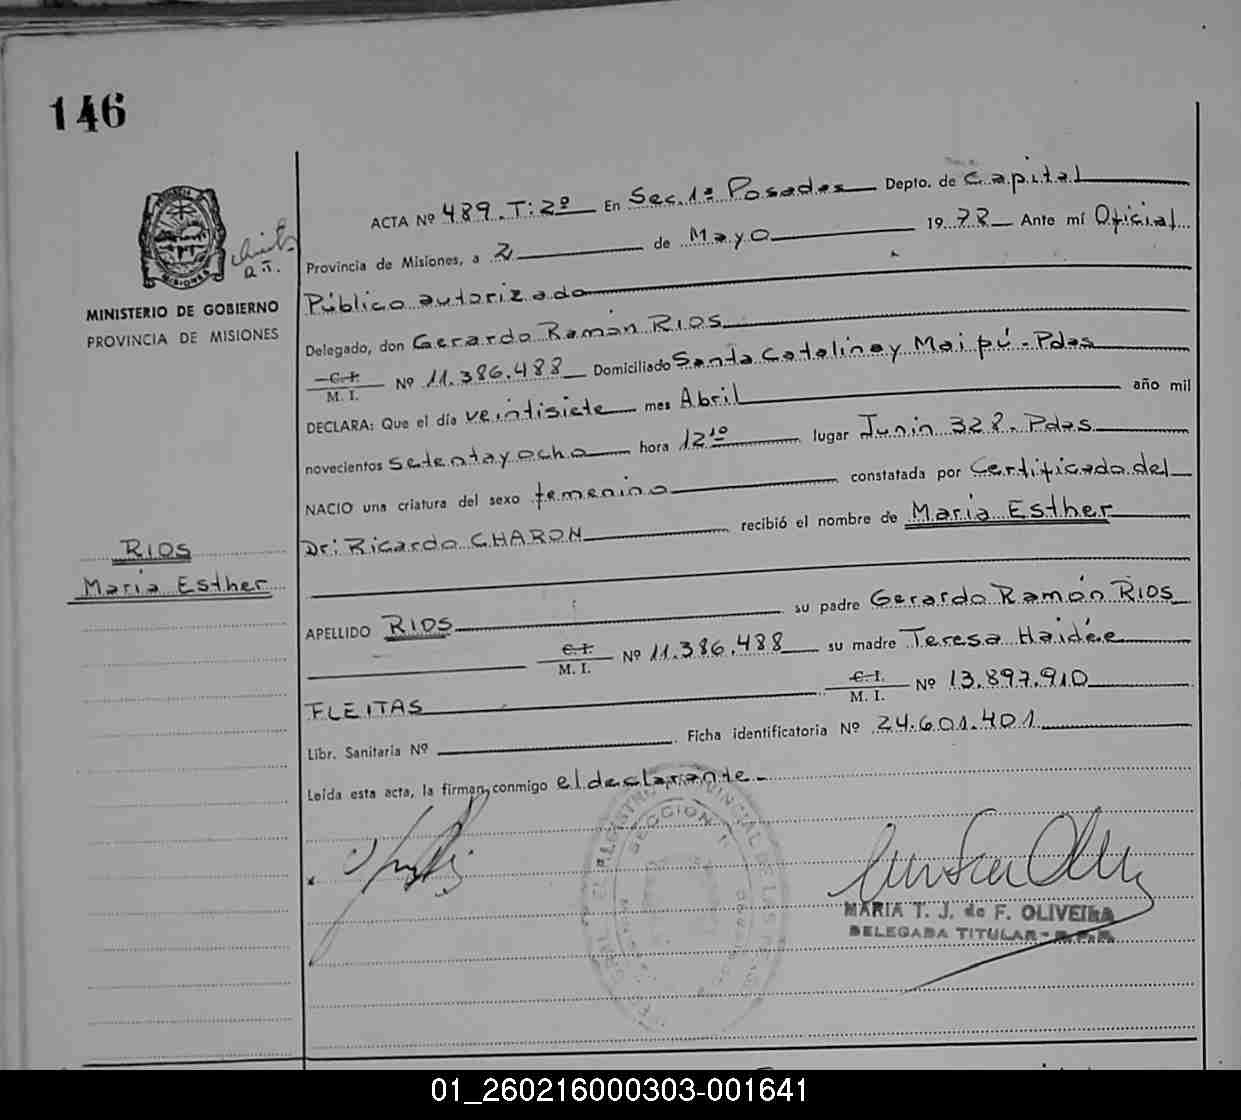 146
MINISTERIO DE GOBIERNO
PROVINCIA DE MISIONES
RIOS
Maria Esther
ACTA Nº 489. T: 2º En Sec. 1ª Posadas Depto. de Capital
Provincia de Misiones, a 2 de Mayo 19 78 Ante mí Oficial
Público autorizado
Delegado, don Gerardo Ramón RIOS
C. I. M. I. Nº 11.386.488 Domiciliado Santa Catalina y Maipú - Pdas
DECLARA: Que el día veintisiete mes Abril año mil
novecientos setenta y ocho hora 12 10 lugar Junin 328. Pdas
NACIO una criatura del sexo femenino constatada por Certificado del
Dr: Ricardo CHARON recibió el nombre de Maria Esther
APELLIDO RIOS su padre Gerardo Ramón RIOS
C. I. M. I. Nº 11.386.488 su madre Teresa Haidée
FLEITAS C. I. M. I. Nº 13.897.910
Libr. Sanitaria Nº Ficha identificatoria Nº 24.601.401
Leída esta acta, la firman conmigo el declarante.
MARIA T. J. de F. OLIVEIRA
DELEGADA TITULAR - R.P.P.
01_260216000303-001641